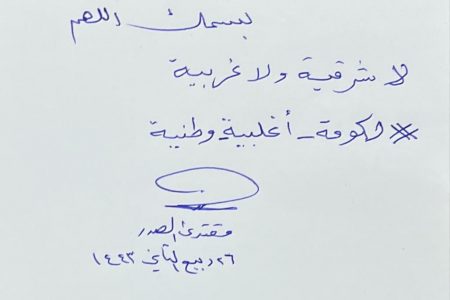 بسمك اللهم
لا شرقية ولا غربية
حكومة - أغلبية وطنية
مقتدى الصدر
٢٦ ربيع الثاني ١٤٤٣